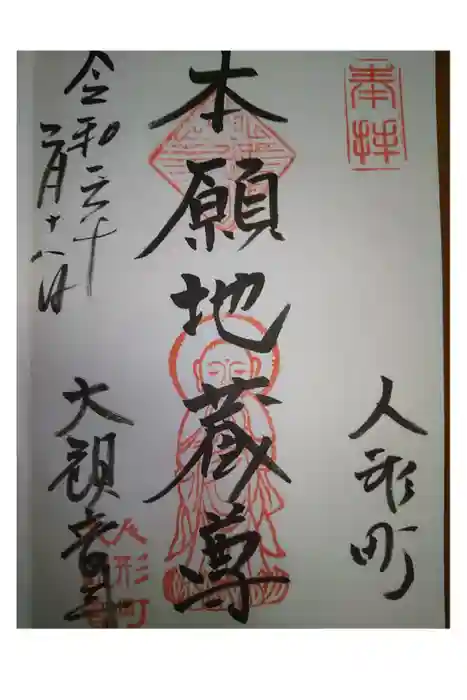 奉拝
人形町
本願地蔵尊
令和三年
月十八日
大観音寺
人形町